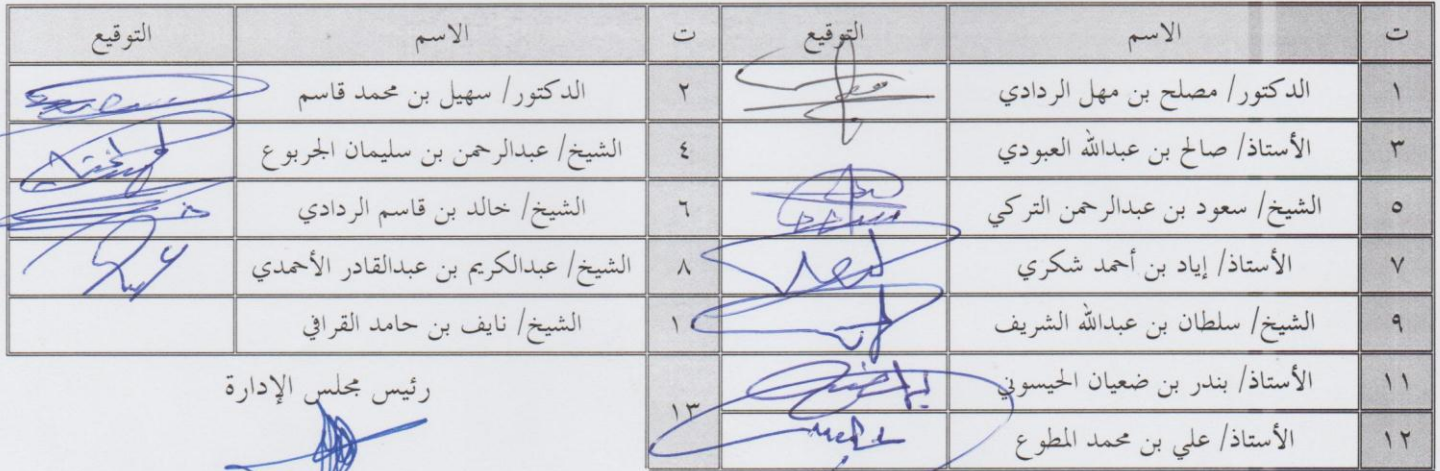 ت الاسم التوقيع ت الاسم التوقيع
١ الدكتور/ مصلح بن مهل الردادي ٢ الدكتور/ سهيل بن محمد قاسم
٣ الأستاذ/ صالح بن عبدالله العبودي ٤ الشيخ/ عبدالرحمن بن سليمان الجربوع
٥ الشيخ/ سعود بن عبدالرحمن التركي ٦ الشيخ/ خالد بن قاسم الردادي
٧ الأستاذ/ إياد بن أحمد شكري ٨ الشيخ/ عبدالكريم بن عبدالقادر الأحمدي
٩ الشيخ/ سلطان بن عبدالله الشريف ١٠ الشيخ/ نايف بن حامد القرافي
١١ الأستاذ/ بندر بن ضعيان الحيسوني ١٣ رئيس مجلس الإدارة
١٢ الأستاذ/ علي بن محمد المطوع